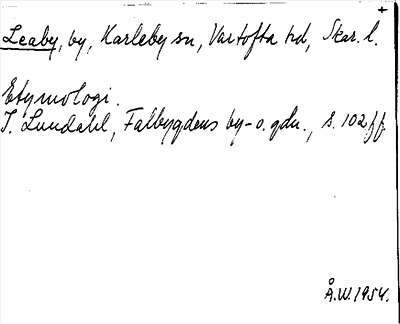 +
Leaby, by, Karleby sn, Vartofta hd, Skar. l.
Etymologi.
I. Lundahl, Falbygdens by- o. gdn., s. 102 ff.
Å.W. 1954.